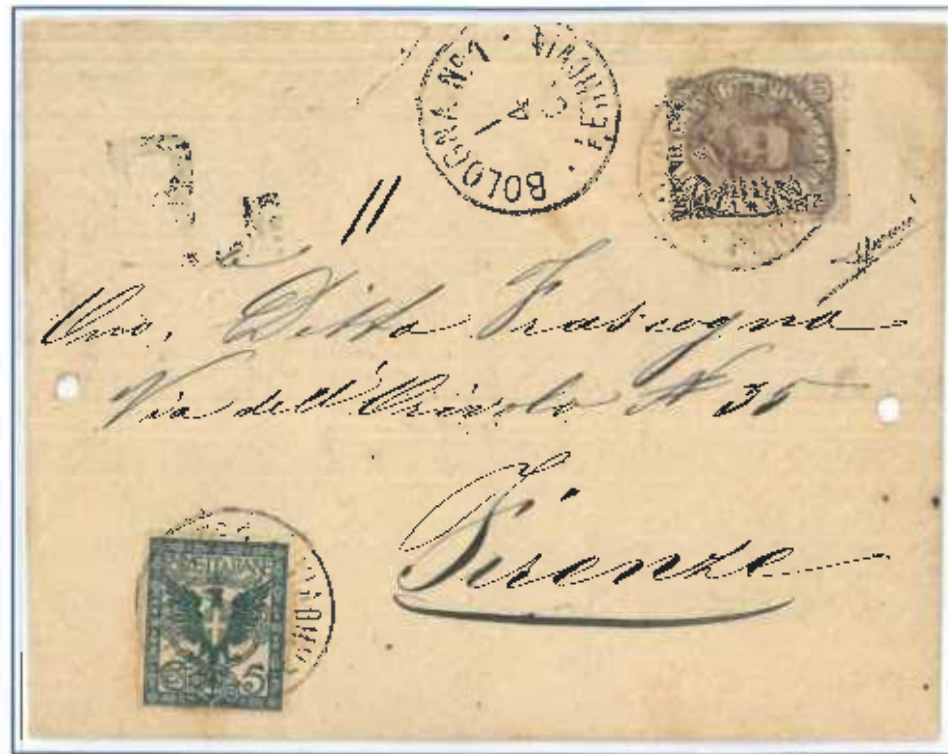 BOLOGNA N.1 · FERROVIA ·
11
Ditta Frascogna
Via dell' Oriuolo N 35
Firenze
POSTE ITALIANE
5